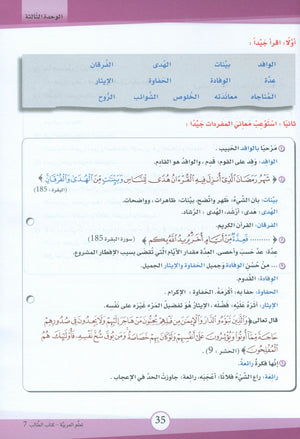 الوحدة الثالثة
أوّلًا: اقرأ جيّداً :
الوافد بيّنات الهدى الفرقان
عدّة الوفادة الحفاوة الإيثار
المناجاه معاندته الخلوص الشوائب الرّوح
ثانيًا : استوعبْ معانيَ المفردات جيّدًا :
مرْحبًا بالوافد الحبيب .
الوافد: وفد على القوم: قدم ، والوافد هو القادم.
﴿ شَهْرُ رَمَضَانَ الَّذِي أُنزِلَ فِيهِ الْقُرْءَانُ هُدًى لِّلنَّاسِ وَبَيِّنَٰتٍ مِّنَ الْهُدَىٰ وَالْفُرْقَانِ ﴾
(البقرة: 185)
بيّنات: بان الشّيءُ: ظهر واتّضح، بيّنات: ظاهرات ، وواضحات.
الهدى: هدى: أرْشد، الهدى : الرّشاد.
الفرقان: القرآن الكريم.
﴿ ........ فَعِدَّةٌ مِّنْ أَيَّامٍ أُخَرَ يُرِيدُ اللَّهُ بِكُمُ ﴾ (سورة البقرة 185)
عدّة: عدّ: حسب وأحصى. العدّة مقدار الأيّام الّتي تُقضى بسبب الإفطار المشروع.
... منْ حُسْنِ الوفادة وجميل الحفاوة والإيثار الجميل.
الوفادة: القدوم.
الحفاوة: حفا به: أكْرمهُ. الحفاوة: الإكرام.
الإيثار: آثرهُ عَلَيْهِ: فضّله. الإيثارُ: هُوَ تفضيل المرْء غيْره على نَفْسه.
قال تعالى: ﴿وَالَّذِينَ تَبَوَّءُو الدَّارَ وَالْإِيمَٰنَ مِن قَبْلِهِمْ يُحِبُّونَ مَنْ هَاجَرَ إِلَيْهِمْ وَلَا يَجِدُونَ فِي صُدُورِهِمْ
حَاجَةً مِّمَّا أُوتُوا وَيُؤْثِرُونَ عَلَىٰ أَنفُسِهِمْ وَلَوْ كَانَ بِهِمْ خَصَاصَةٌ وَمَن يُوقَ شُحَّ نَفْسِهِ فَأُولَٰئِكَ هُمُ
الْمُفْلِحُونَ﴾ (الحشر : 9).
إنّها فكرةٌ رائعة.
رائعة: راع الشّيءُ فلانًا: أعْجبه، رائعة: جاوزت الحدّ في الإعجاب .
35
تعلّم العربيّة - كتاب الطّالب 7